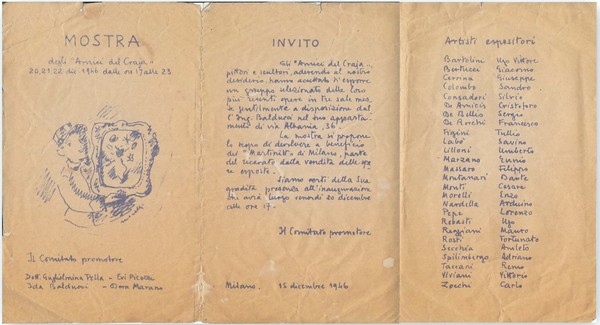 MOSTRA
degli "Amici del Craja"
20, 21, 22 dic. 1946 dalle ore 17 alle 23
Il Comitato promotore
Dott. Guglielmina Pella - Evi Picozzi
Ida Balduori - Elena Marano
INVITO
Gli "Amici del Craja",
pittori e scultori, aderendo al nostro
desiderio, hanno accettato d'esporre
un gruppo selezionato delle loro
più recenti opere in tre sale mes-
se gentilmente a disposizione dal
l'Ing. Balduori nel suo apparta-
mento di via Albania, 36.
La mostra si propone
lo scopo di devolvere a beneficio
del "Martinitt" di Milano, parte
del ricavato dalla vendita delle ope
re esposte.
Siamo certi della Sua
gradita presenza all'inaugurazione
che avrà luogo venerdì 20 dicembre
alle ore 17.
Il Comitato promotore
Milano. 15 dicembre 1946
Artisti espositori
Bartolini Ugo Vittore
Bertucci Giacomo
Cerrina Giuseppe
Colombo Sandro
Consadori Silvio
De Amicis Cristoforo
De Bellis Sergio
De Rocchi Francesco
Figini Tullio
Labò Savino
Lilloni Umberto
Marzano Ennio
Massaro Filippo
Montanari Dante
Monti Cesare
Morelli Enzo
Nardella Arduino
Pepe Lorenzo
Rebasti Ugo
Reggiani Mauro
Rosti Fortunato
Secchia Amleto
Spilimbergo Adriano
Taccani Remo
Viviani Vittorio
Zocchi Carlo